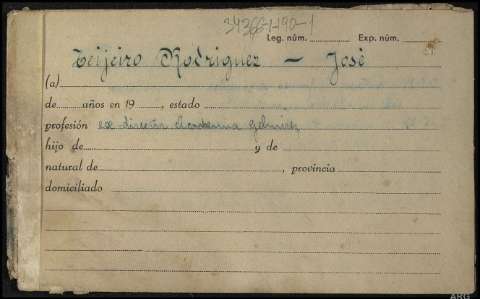 34366-190-1
Leg. núm. Exp. núm.
Teijeiro Rodriguez — José
(a)
de años en 19 , estado
profesión ex-director Academia Gelmirez
hijo de y de
natural de , provincia
domiciliado
ARG